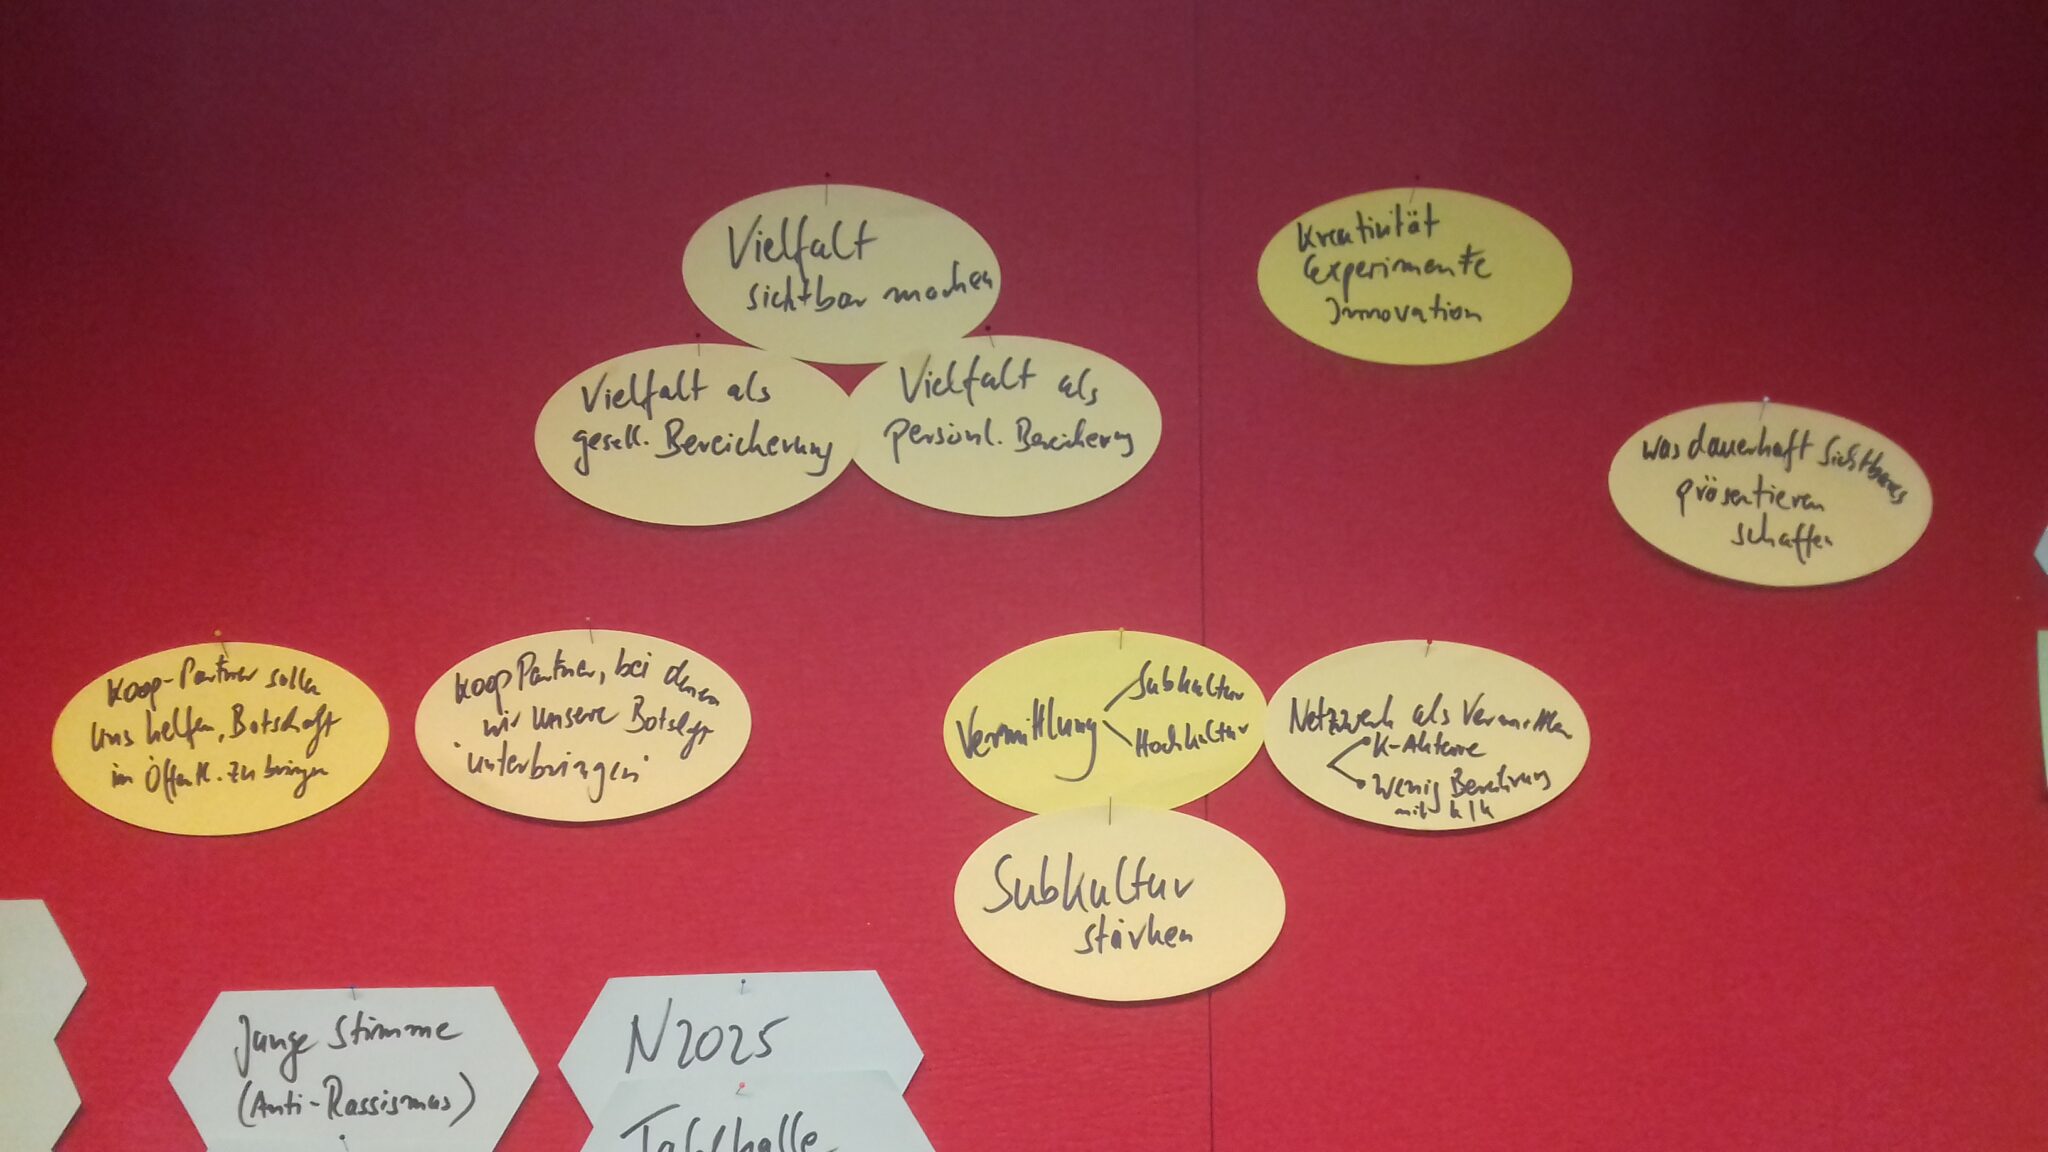 Vielfalt
sichtbar machen
Kreativität
Experimente
Innovation
Vielfalt als
gesell. Bereicherung
Vielfalt als
persönl. Bereicherung
was dauerhaft Sichtbares
präsentieren
schaffen
Koop-Partner sollen
uns helfen, Botschaft
in Öffentl. zu bringen
Koop Partner, bei denen
wir unsere Botschaft
"unterbringen"
Vermittlung
Subkultur
Hochkultur
Netzwerk als Vermittler
K-Akteure
wenig Berührung
mit K/K
Subkultur
stärken
Junge Stimme
(Anti-Rassismus)
N2025
Tafelhalle